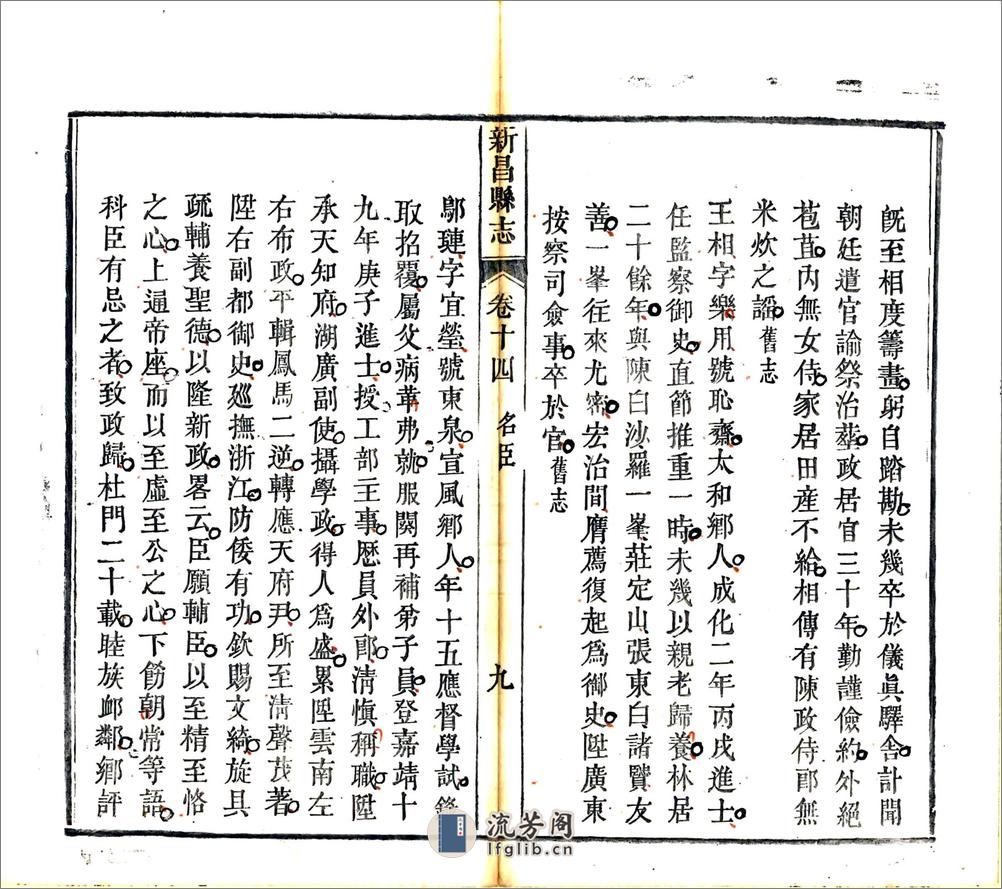 旣至相度籌畫躬自踏勘未幾卒於儀眞驛舍計聞
朝廷遣官諭祭治葬政居官三十年勤謹儉約外絕
苞苴內無女侍家居田産不給相傳有陳政侍郎無
米炊之謡舊志
王相字樂用號恥齋太和鄉人成化二年丙戌進士
任監察御史直節推重一時未幾以親老歸養林居
二十餘年與陳白沙羅一峯莊定山張東白諸賢友
善一峯往來尤密宏治間膺薦復起爲御史陞廣東
按察司僉事卒於官舊志
新昌縣志
卷十四
名臣
九
鄔璉字宜瑩號東泉宣風鄉人年十五應督學試錄
取招覆屬父病革弗就服闋再補弟子員登嘉靖十
九年庚子進士授工部主事歷員外郎淸愼稱職陞
承天知府湖廣副使攝學政得人爲盛累陞雲南左
右布政平輯鳳馬二逆轉應天府尹所至淸聲茂著
陞右副都御史廵撫浙江防倭有功欽賜文綺旋具
疏輔養聖德以隆新政畧云臣願輔臣以至精至恪
之心上逼帝座而以至虛至公之心下飭朝常等語
科臣有忌之者致政歸杜門二十載睦族邺鄰鄉評
流芳阁
lfglib.cn